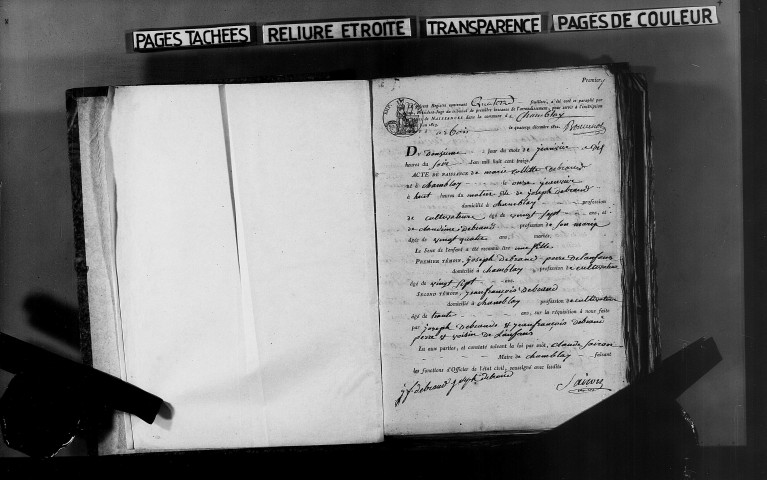 PAGES TACHÉES
RELIURE ETROITE
TRANSPARENCE
PAGES DE COULEUR
Premier
Registre contenant Quatorze feuillets, a été coté et paraphé par
Juge du tribunal de première instance de l'arrondissement, pour servir à l'inscription
de NAISSANCES dans la commune de Chamblay
arbois le quatorze décembre
DU douzieme jour du mois de janvier
heures du soir l'an mil huit cent treize
ACTE DE NAISSANCE de marie collette debrand
né à chamblay le onze janvier
à huit heures du matin fils de joseph debrand
domicilié à chamblay profession
de cultivateur âgé de vingt sept ans, et
de claudine debrand profession de son marie
âgée de vingt quatre ans, mariés.
Le sexe de l'enfant a été reconnu être une fille
PREMIER TÉMOIN, joseph debrand pere de lenfant
domicilié à chamblay profession de cultivateur
âgé de vingt sept ans.
SECOND TÉMOIN, jeanfrançois debrand
domicilié à chamblay profession de cultivateur
âgé de trente ans, sur la réquisition à nous faite
par joseph debrand et jeanfrançois debrand
pere et voisin de lenfant
Lu aux parties, et constaté suivant la loi par moi, claude
Maire de chamblay faisant
les fonctions d'Officier de l'état civil, soussigné avec lesdits
j f debrand joseph debrand